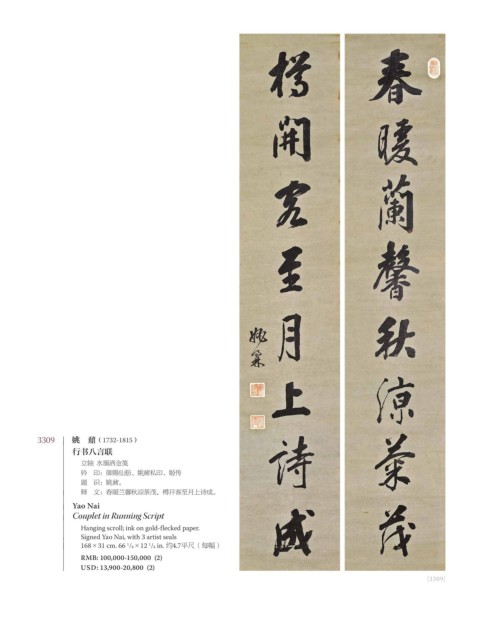 春暖蘭馨秋涼菊茂
樽開客至月上詩成
姚鼐
3309
姚 鼐（1732-1815）
行书八言联
立轴 水墨洒金笺
题 识：姚鼐。
释 文：春暖兰馨秋凉菊茂，樽开客至月上诗成。
Yao Nai
Couplet in Running Script
Hanging scroll; ink on gold-flecked paper.
Signed Yao Nai, with 3 artist seals
168×31 cm. 66 1/8×12 1/4 in. 约4.7平尺（每幅）
RMB: 100,000-150,000 (2)
USD: 13,900-20,800 (2)
[3309]